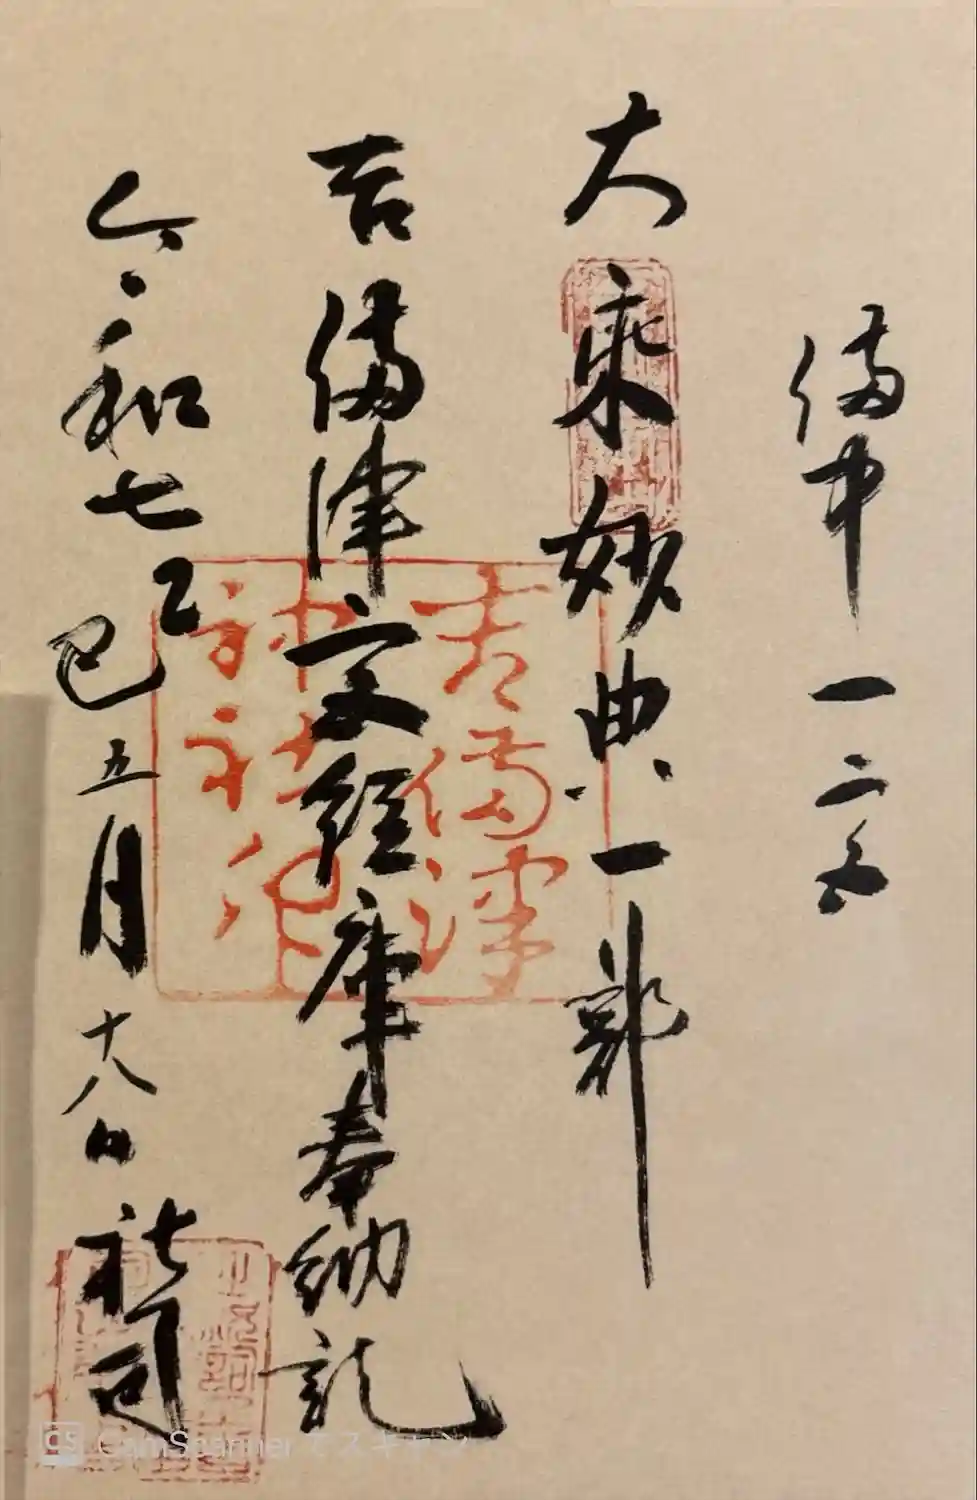 備中一之宮
大乗妙典一部
吉備津宮経庫奉納記
令和七乙巳五月十八日社司
吉備津
神社
CamScanner でスキャン